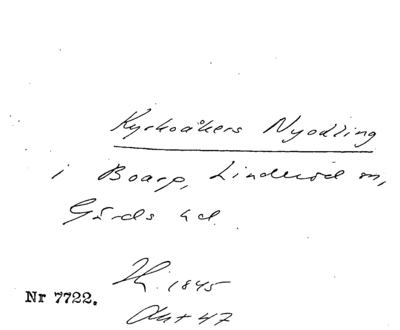 Kyrkoåkers Nyodling
i Boarp, Linderöd sn,
Gärds hd.
1845
Nr 7722.
Akt 47